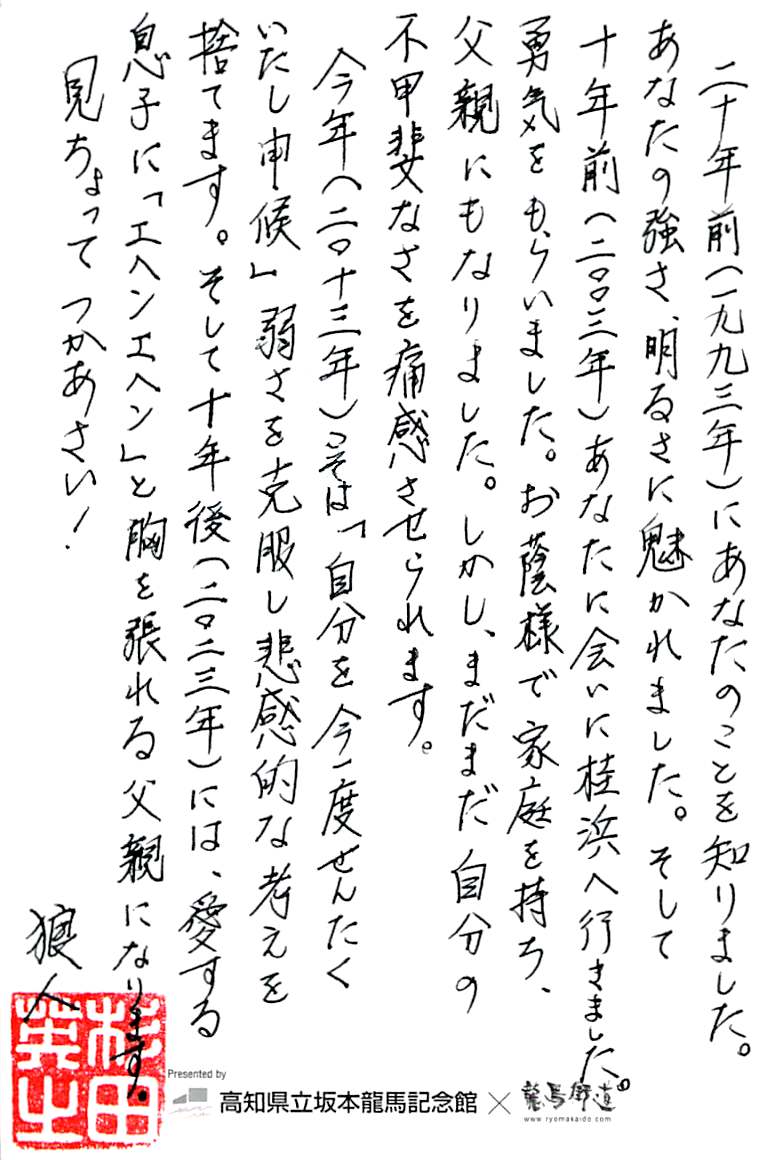 二十年前(一九九三年)にあなたのことを知りました。
あなたの強さ、明るさに魅かれました。そして
十年前(二〇〇三年)あなたに会いに桂浜へ行きました。
勇気をもらいました。お蔭様で家庭を持ち、
父親にもなりました。しかし、まだまだ自分の
不甲斐なさを痛感させられます。
今年(二〇十三年)こそは「自分を今一度せんたく
いたし申候」弱さを克服し悲感的な考えを
捨てます。そして十年後(二〇二三年)には、愛する
息子に「エヘンエヘン」と胸を張れる父親になります。
見ちょってつかあさい!
狼人
杉田
英之
Presented by
高知県立坂本龍馬記念館×龍馬街道
www.ryomakaido.com